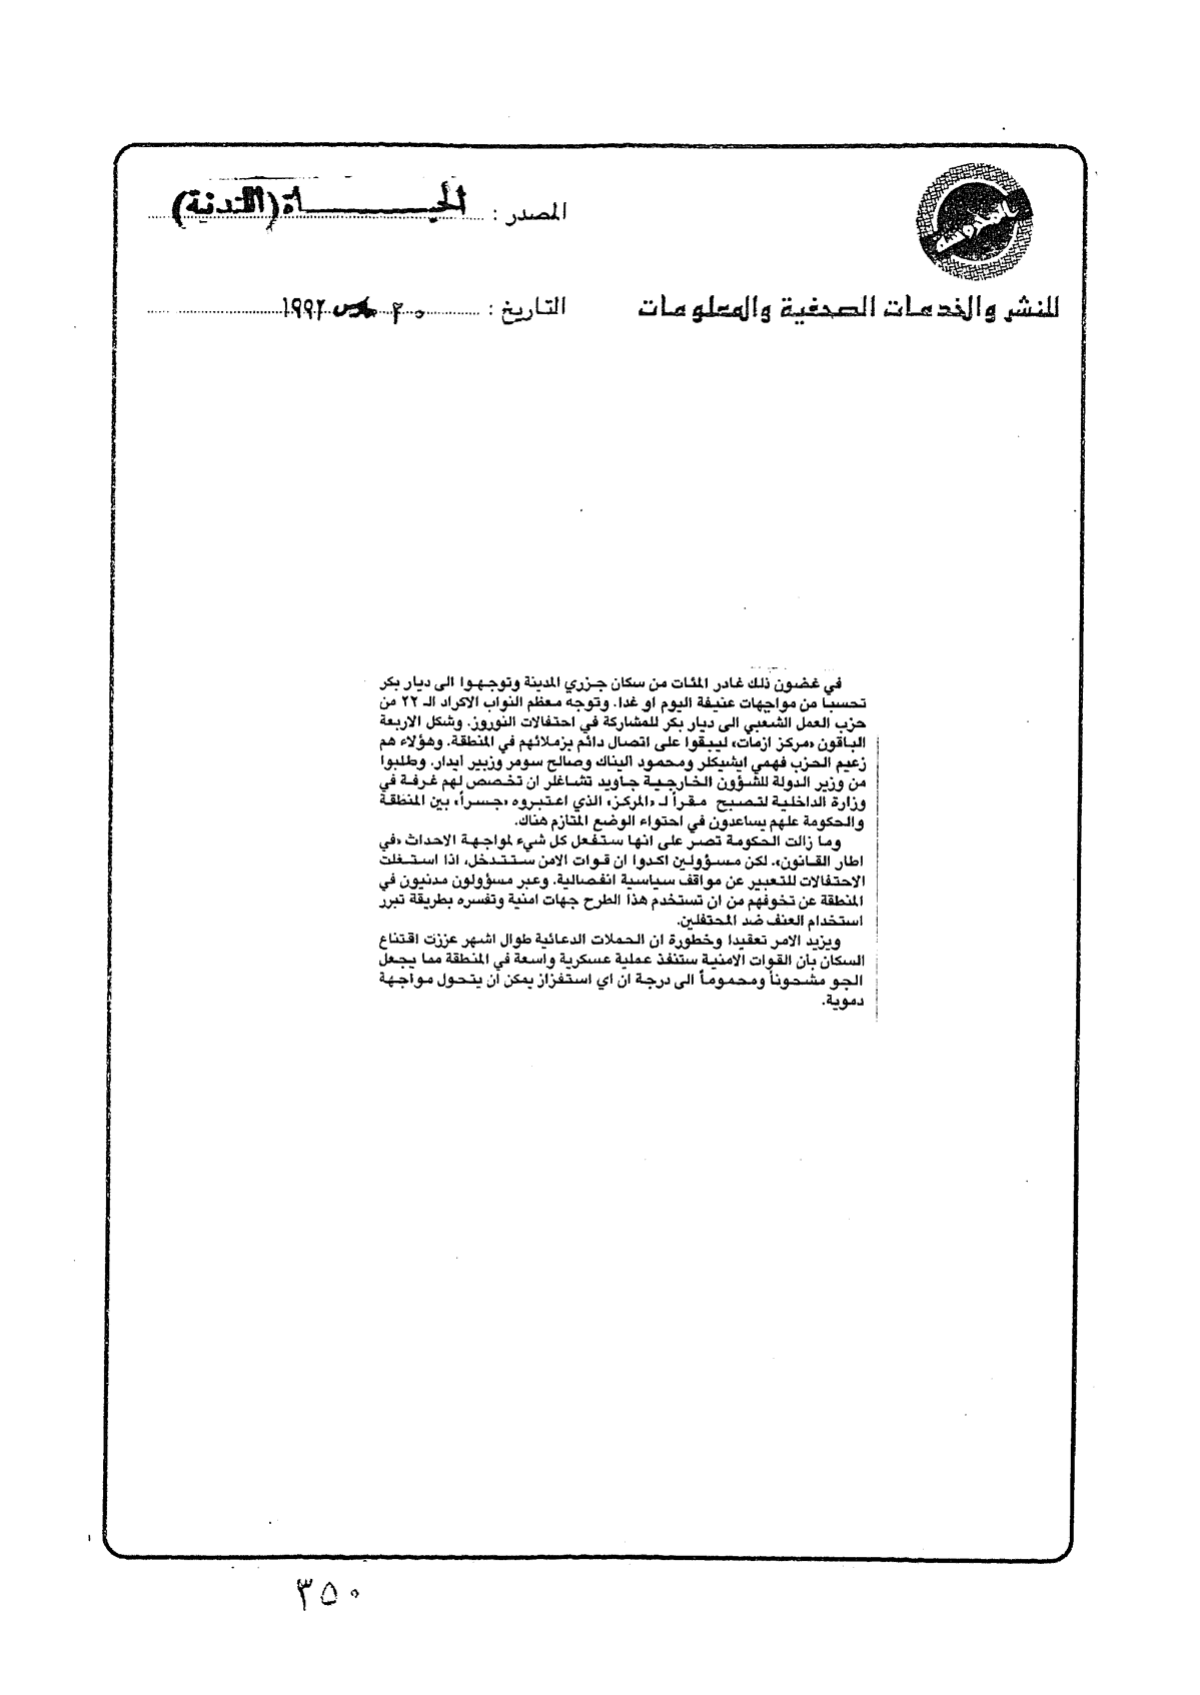 المصدر : الحيـــــاة (اللندنية)
للنشر والخدمات الصحفية والمعلومات
التاريخ : ٢٠ مارس ١٩٩٢
في غضون ذلك غادر المئات من سكان جزري المدينة وتوجهوا الى ديار بكر
تحسباً من مواجهات عنيفة اليوم او غدا. وتوجه معظم النواب الاكراد الـ ٢٢ من
حزب العمل الشعبي الى ديار بكر للمشاركة في احتفالات النوروز. وشكل الاربعة
الباقون «مركز ازمات» ليبقوا على اتصال دائم بزملائهم في المنطقة. وهؤلاء هم
زعيم الحزب فهمي ايشيكلر ومحمود اليناك وصالح سومر وزبير ايدار. وطلبوا
من وزير الدولة للشؤون الخارجية جاويد تشاغلر ان تخصص لهم غرفة في
وزارة الداخلية لتصبح مقراً لـ «المركز» الذي اعتبروه «جسراً» بين المنطقة
والحكومة علهم يساعدون في احتواء الوضع المتازم هناك.
وما زالت الحكومة تصر على انها ستفعل كل شيء لمواجهة الاحداث «في
اطار القانون». لكن مسؤولين اكدوا ان قوات الامن ستتدخل، اذا استغلت
الاحتفالات للتعبير عن مواقف سياسية انفصالية. وعبر مسؤولون مدنيون في
المنطقة عن تخوفهم من ان تستخدم هذا الطرح جهات امنية وتفسره بطريقة تبرر
استخدام العنف ضد المحتفلين.
ويزيد الامر تعقيدا وخطورة ان الحملات الدعائية طوال اشهر عززت اقتناع
السكان بأن القوات الامنية ستنفذ عملية عسكرية واسعة في المنطقة مما يجعل
الجو مشحوناً ومحموماً الى درجة ان اي استفزاز يمكن ان يتحول مواجهة
دموية.
٣٥٠